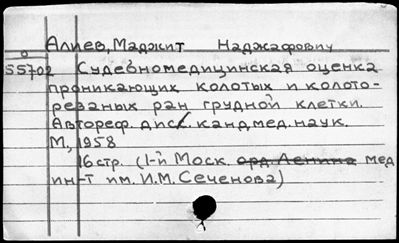 Алиев, Маджит Наджафович
55702 Судебномедицинская оценка
проникающих колотых и колото-
резаных ран грудной клетки.
Автореф. дисс. канд. мед. наук.
М, 1958
16 стр. (1-й Моск. орд. Ленина мед
ин-т им. И.М. Сеченова)